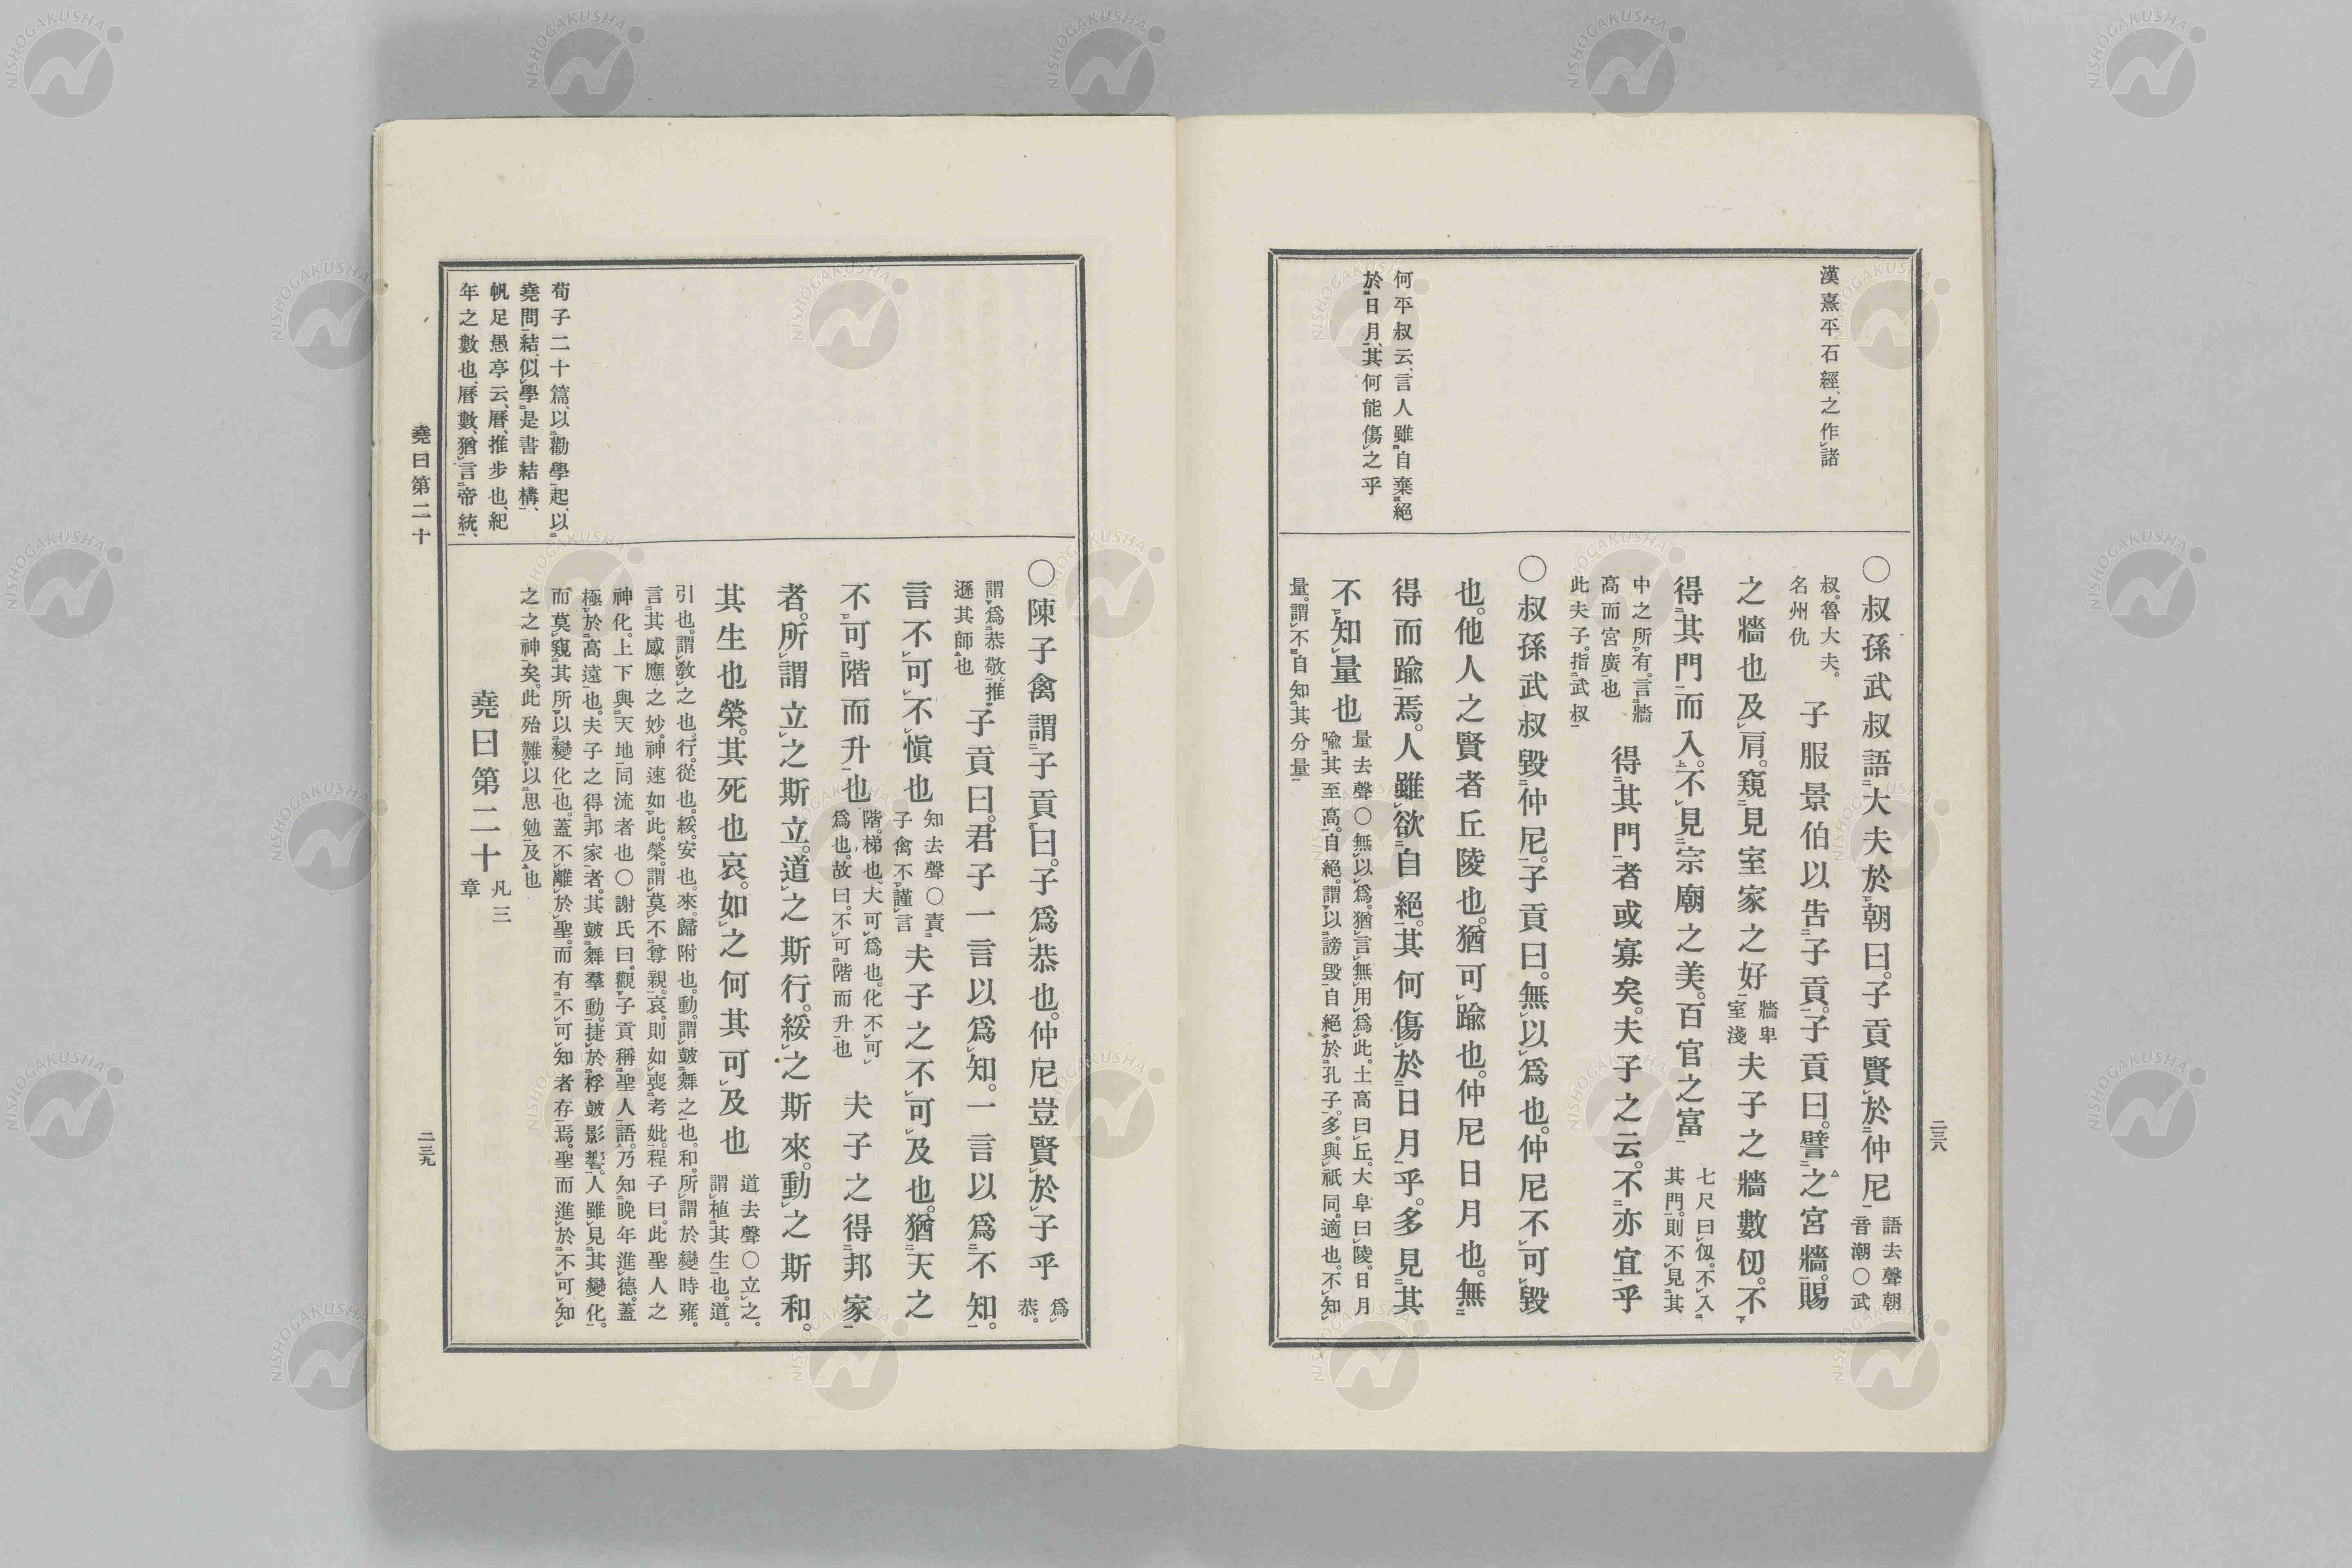 漢熹平石經、之作諸
何平叔云、言人雖自棄絕
於日月、其何能傷之乎
○叔孫武叔語大夫於朝曰。子貢賢於仲尼
語去聲朝
音潮○武
叔。魯大夫。
名州仇
子服景伯以告子貢。子貢曰。譬之宮牆。賜
之牆也及肩。窺見室家之好
牆卑
室淺
夫子之牆數仞。不
得其門而入。不見宗廟之美。百官之富
七尺曰仭。不入
其門。則不見其
中之所有。言牆
高而宮廣也
得其門者或寡矣。夫子之云。不亦宜乎
此夫子。指武叔
○叔孫武叔毀仲尼。子貢曰。無以爲也。仲尼不可毀
也。他人之賢者丘陵也。猶可踰也。仲尼日月也。無
得而踰焉。人雖欲自絕。其何傷於日月乎。多見其
不知量也
量去聲○無以爲。猶言無用爲此。土高曰丘。大阜曰陵。日月
喩其至高。自絕。謂以謗毀自絕於孔子。多。與祇同。適也。不知
量。謂不自知其分量
二三八
荀子二十篇、以勸學起、以
堯問結、似學是書結構、
帆足愚亭云、曆、推步也、紀
年之數也、曆數、猶言帝統、
○陳子禽謂子貢。曰。子爲恭也。仲尼豈賢於子乎
爲
恭。
謂爲恭敬。推
遜其師也
子貢曰。君子一言以爲知。一言以爲不知。
言不可不愼也
知去聲○責
子禽不謹言
夫子之不可及也。猶天之
不可階而升也
階。梯也、大可爲也。化不可
爲也。故曰。不可階而升也
夫子之得邦家
者。所謂立之斯立。道之斯行。綏之斯來。動之斯和。
其生也榮。其死也哀。如之何其可及也
道去聲○立之。
謂植其生也。道。
引也。謂敎之也。行。從也。綏。安也。來。歸附也。動。謂皷舞之也。和。所謂於變時雍。
言其感應之妙。神速如此。榮。謂莫不尊親。哀。則如喪考妣。程子曰。此聖人之
神化。上下與天地同流者也○謝氏曰。觀子貢稱聖人語。乃知晚年進德。蓋
極於高遠也。夫子之得邦家者。其皷舞羣動。捷於桴皷影響。人雖見其變化。
而莫窺其所以變化也。蓋不離於聖。而有不可知者存焉。聖而進於不可知
之之神矣。此殆難以思勉及也
堯曰第二十
凡三
章
堯曰第二十
二三九